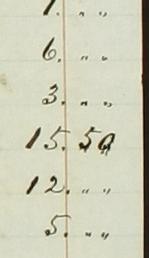 1. " "
6. " "
3. " "
15. 50
12. " "
5. " "